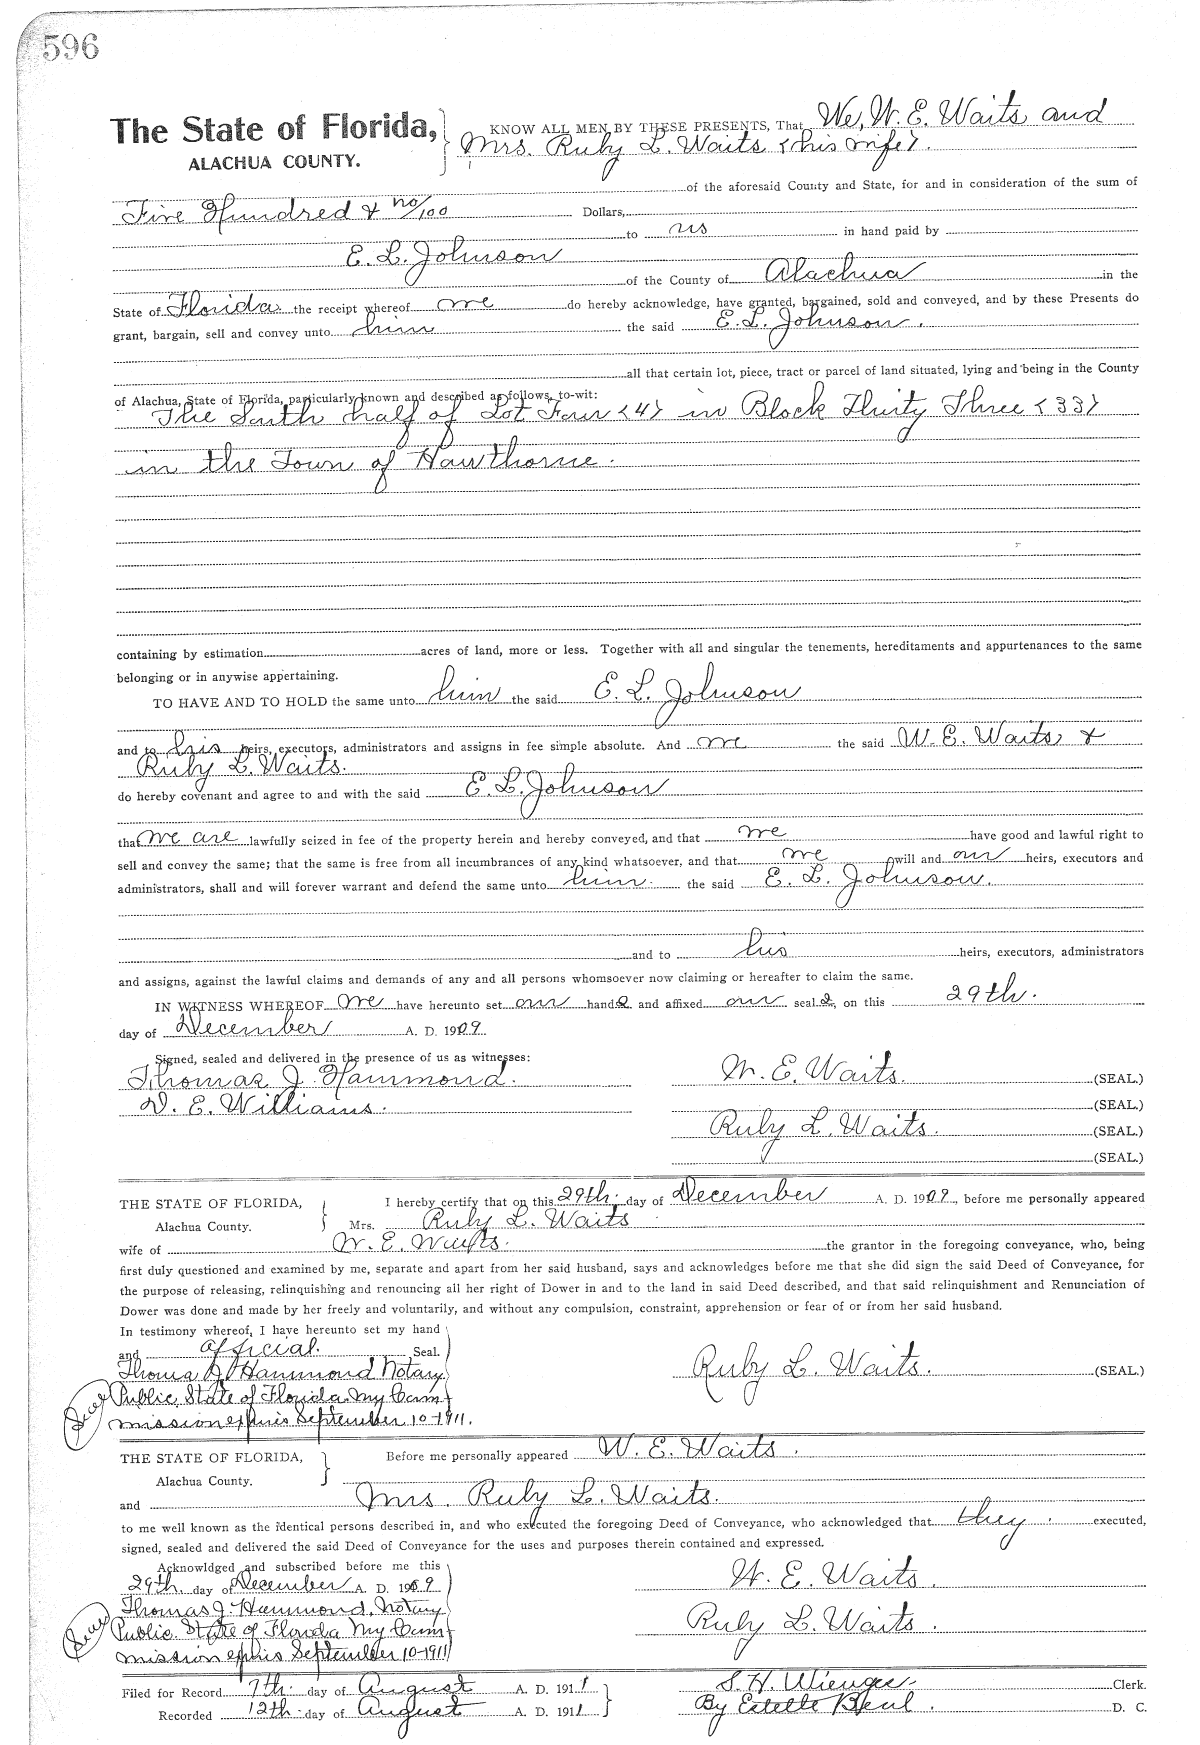 596
The State of Florida, KNOW ALL MEN BY THESE PRESENTS, That We, W. E. Waits and
ALACHUA COUNTY. Mrs. Ruby L. Waits (his wife).
of the aforesaid County and State, for and in consideration of the sum of
Five Hundred & no/100 Dollars,
to us in hand paid by
E. L. Johnson
of the County of Alachua in the
State of Florida the receipt whereof we do hereby acknowledge, have granted, bargained, sold and conveyed, and by these Presents do
grant, bargain, sell and convey unto him the said E. L. Johnson.
all that certain lot, piece, tract or parcel of land situated, lying and being in the County
of Alachua, State of Florida, particularly known and described as follows, to-wit:
The South half of Lot Four (4) in Block Thirty Three (33)
in the Town of Hawthorne.
containing by estimation acres of land, more or less. Together with all and singular the tenements, hereditaments and appurtenances to the same
belonging or in anywise appertaining.
TO HAVE AND TO HOLD the same unto him the said E. L. Johnson
and to his heirs, executors, administrators and assigns in fee simple absolute. And we the said W. E. Waits &
Ruby L. Waits.
do hereby covenant and agree to and with the said E. L. Johnson
that we are lawfully seized in fee of the property herein and hereby conveyed, and that we have good and lawful right to
sell and convey the same; that the same is free from all incumbrances of any kind whatsoever, and that we will and our heirs, executors and
administrators, shall and will forever warrant and defend the same unto him. the said E. L. Johnson.
and to his heirs, executors, administrators
and assigns, against the lawful claims and demands of any and all persons whomsoever now claiming or hereafter to claim the same.
IN WITNESS WHEREOF we have hereunto set our hands and affixed our seals, on this 29th.
day of December A. D. 1909
Signed, sealed and delivered in the presence of us as witnesses:
Thomas J. Hammond. W. E. Waits. (SEAL.)
D. E. Williams. (SEAL.)
Ruby L. Waits. (SEAL.)
(SEAL.)
THE STATE OF FLORIDA, I hereby certify that on this 29th. day of December A. D. 1909, before me personally appeared
Alachua County. Mrs. Ruby L. Waits
wife of W. E. Waits. the grantor in the foregoing conveyance, who, being
first duly questioned and examined by me, separate and apart from her said husband, says and acknowledges before me that she did sign the said Deed of Conveyance, for
the purpose of releasing, relinquishing and renouncing all her right of Dower in and to the land in said Deed described, and that said relinquishment and Renunciation of
Dower was done and made by her freely and voluntarily, and without any compulsion, constraint, apprehension or fear of or from her said husband.
In testimony whereof, I have hereunto set my hand
and official. Seal.
Thomas J. Hammond Notary Ruby L. Waits. (SEAL)
(Seal) Public, State of Florida. My Com-
mission expires September 10-1911.
THE STATE OF FLORIDA, Before me personally appeared W. E. Waits.
Alachua County.
and Mrs. Ruby L. Waits.
to me well known as the identical persons described in, and who executed the foregoing Deed of Conveyance, who acknowledged that they executed,
signed, sealed and delivered the said Deed of Conveyance for the uses and purposes therein contained and expressed.
Acknowldged and subscribed before me this
29th. day of December A. D. 1909 W. E. Waits.
Thomas J. Hammond, Notary
(Seal) Public. State of Florida My Com- Ruby L. Waits.
mission expires September 10-1911
Filed for Record 7th. day of August A. D. 1911 S. H. Wienges. Clerk.
Recorded 12th. day of August A. D. 1911 By Estelle D. C.